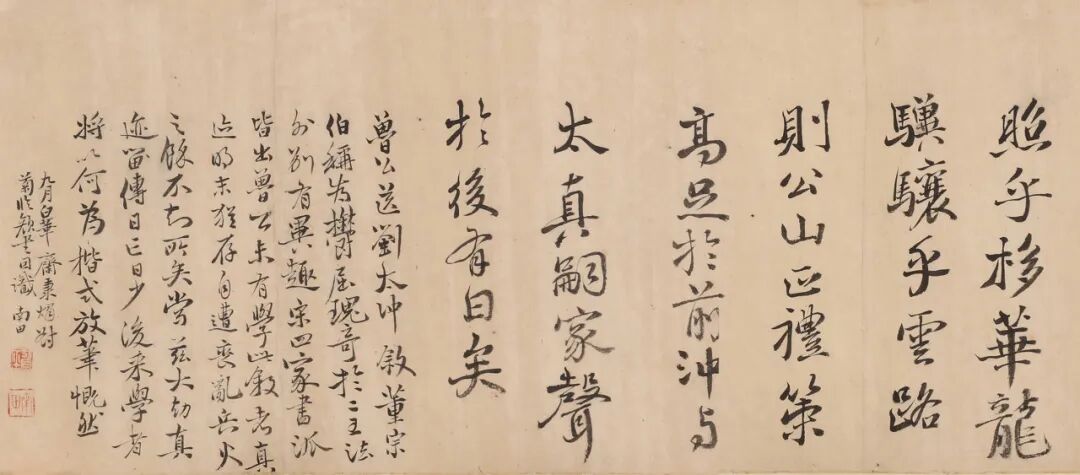 照乎移華龍
驥驤乎雲路
則公山正禮策
高足於前沖与
太真嗣家聲
於後有日矣
魯公送劉太沖敘董宗
伯稱為欝屈瑰奇於二王法
外別有異趣宋四家書派
皆出魯公未有學此敘者真
迹明末猶存自遭喪亂兵火
之餘不知所矣當茲大劫真
迹留傳日已日少後來學者
將以何為楷式放筆慨然
九月白華齋秉燭對
菊臨因識南田